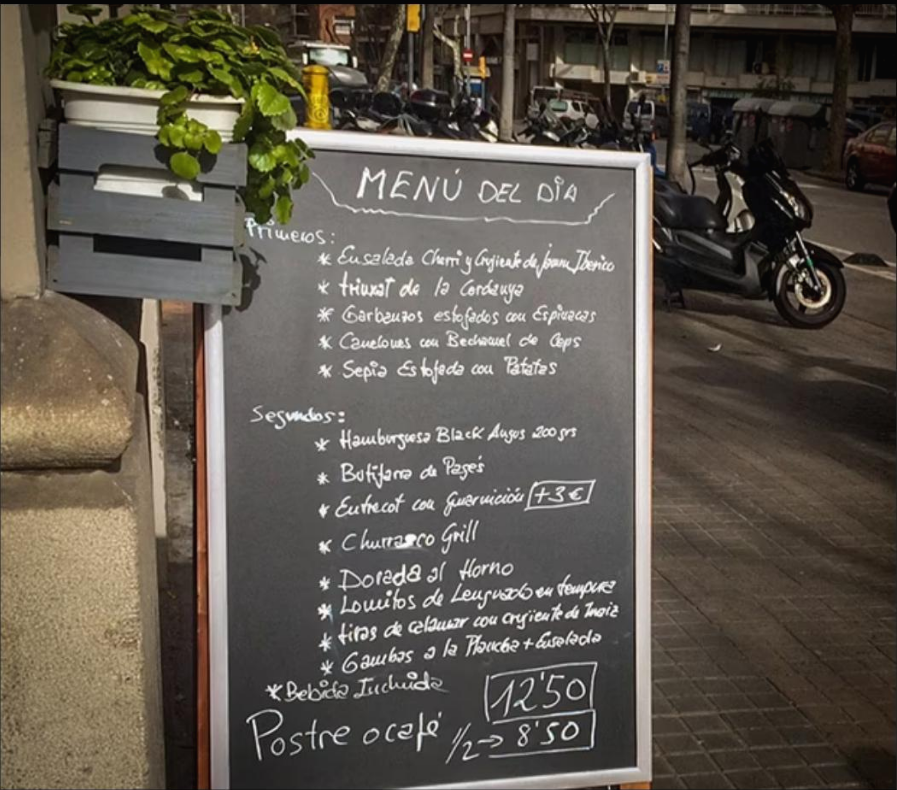 MENÚ DEL DÍA
Primeros:
* Ensalada Cherri y Crujiente de Jamon Iberico
* trinxat de la Cerdanya
* Garbanzos estofados con Espinacas
* Canelones con Bechamel de Ceps
* Sepia Estofada con Patatas
Segundos:
* Hamburguesa Black Angus 200 grs
* Butifarra de Pagés
* Entrecot con guarnición +3€
* Churrasco Grill
* Dorada al Horno
* Lomitos de Lenguado en tempura
* tiras de calamar con crujiente de maiz
* Gambas a la Plancha + Ensalada
* Bebida Incluida
12'50
Postre o café
1/2 → 8'50